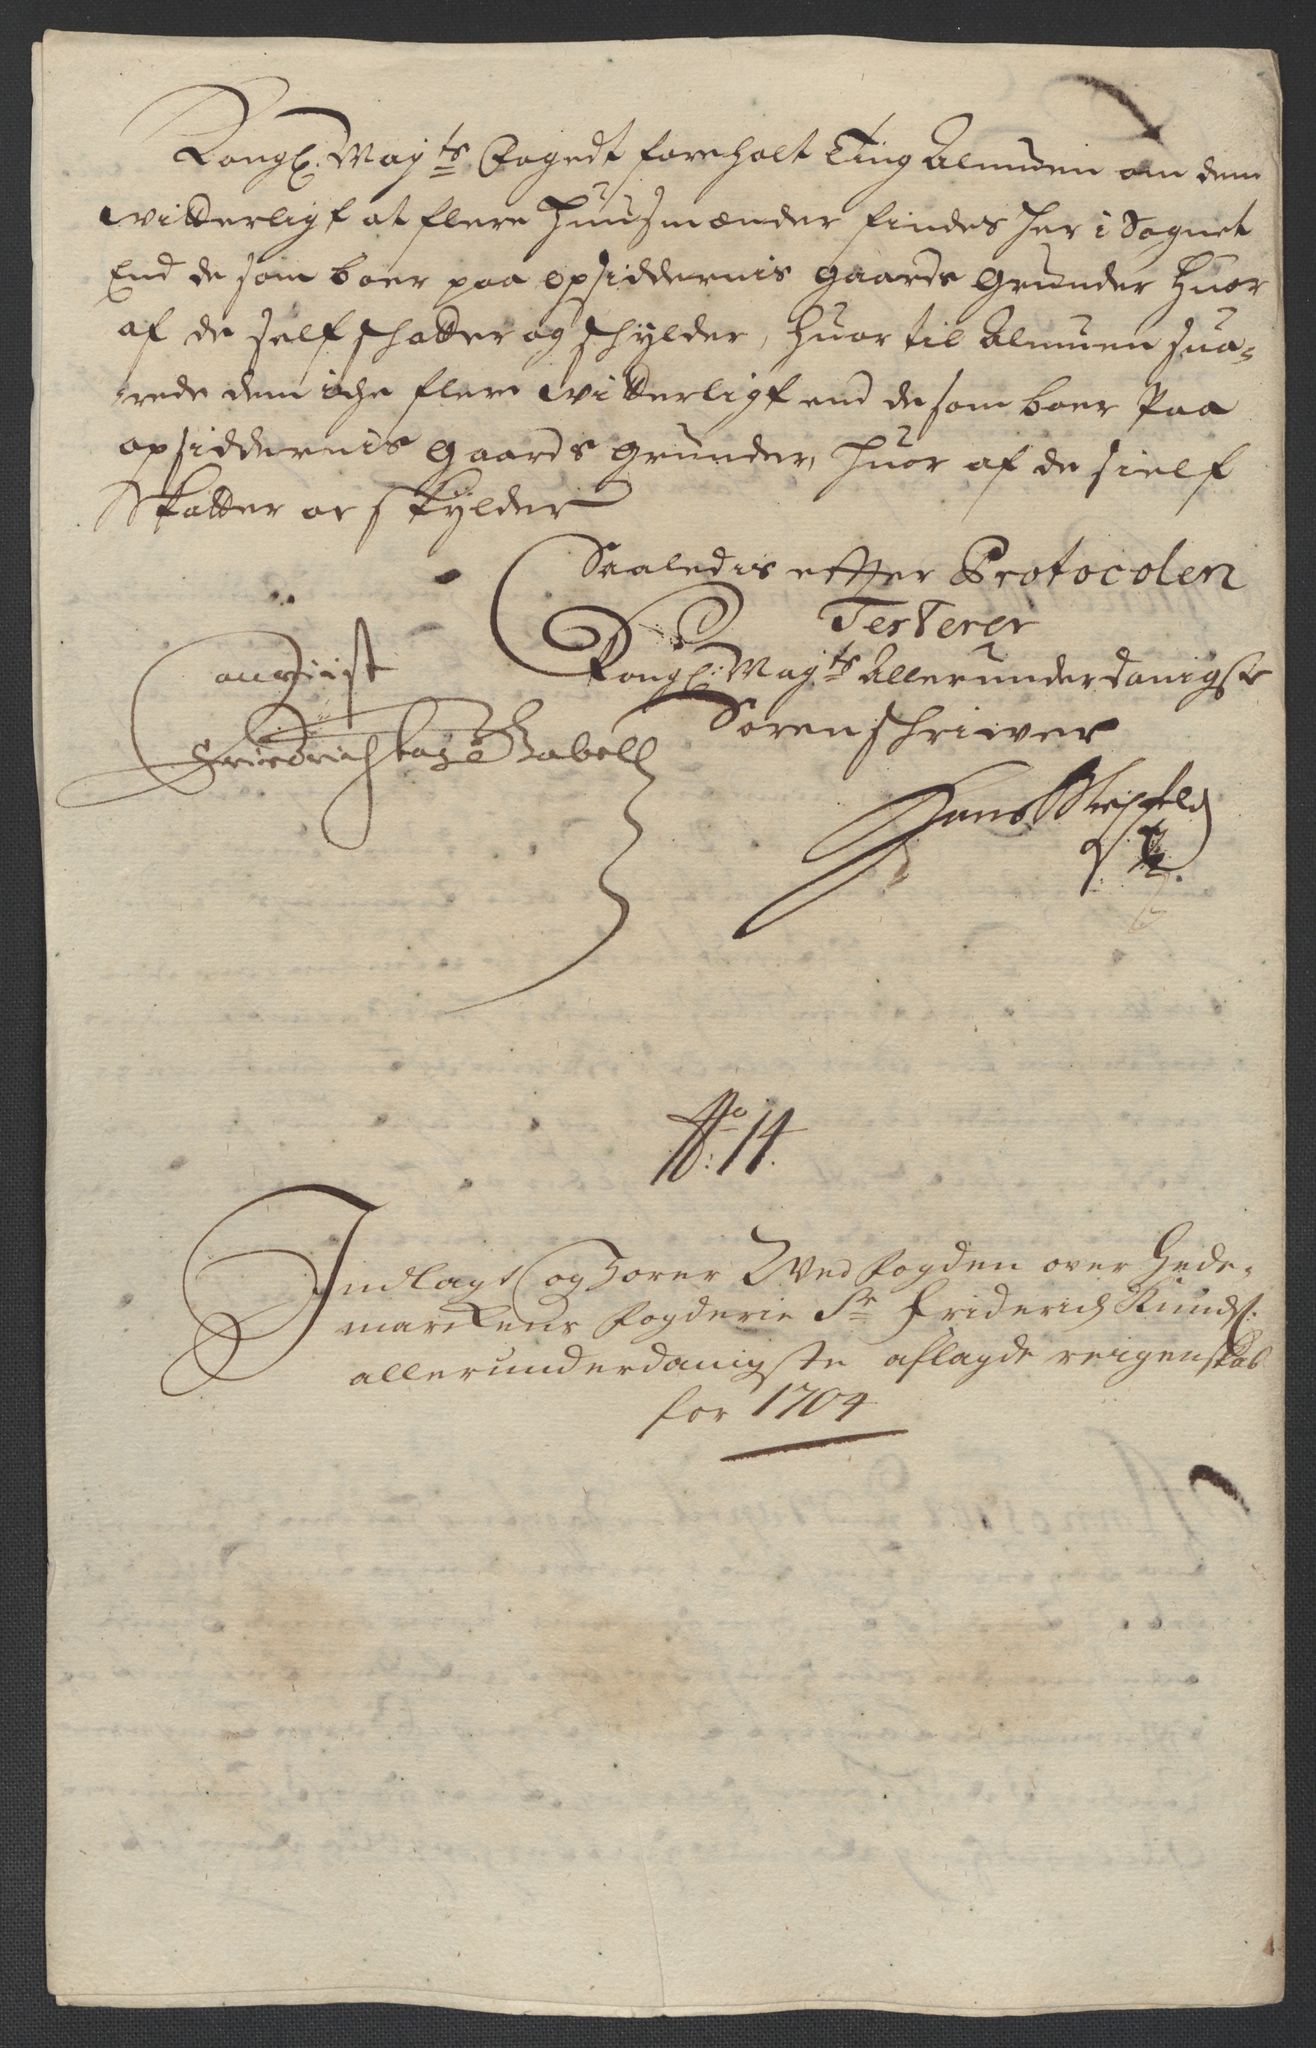 Kongl: Maÿts Fogedt foreholt Ting Almuen om dem
witterligt at flere Huusmænder findes her i Sognet
End de som boer paa opsiddernis gaards grunder huor
af de self schatter og schylder, huor til Almuen sua-
rede dem iche flere witterligt end de som boer Paa
opsiddernis gaards grunder, huor af de sielf
Skatter or skylder
Saaledis effter Protocolen
Testerer
Kongl: Mayts Allerunderdanigste
Sorenschriwer
Hans
Friedrich Gabell
No: 14.
Indlagt og hører Wed fogden over Hede-
markens fogderie Sr Friderich
allerunderdanigste aflagde reigenskab
for 1704